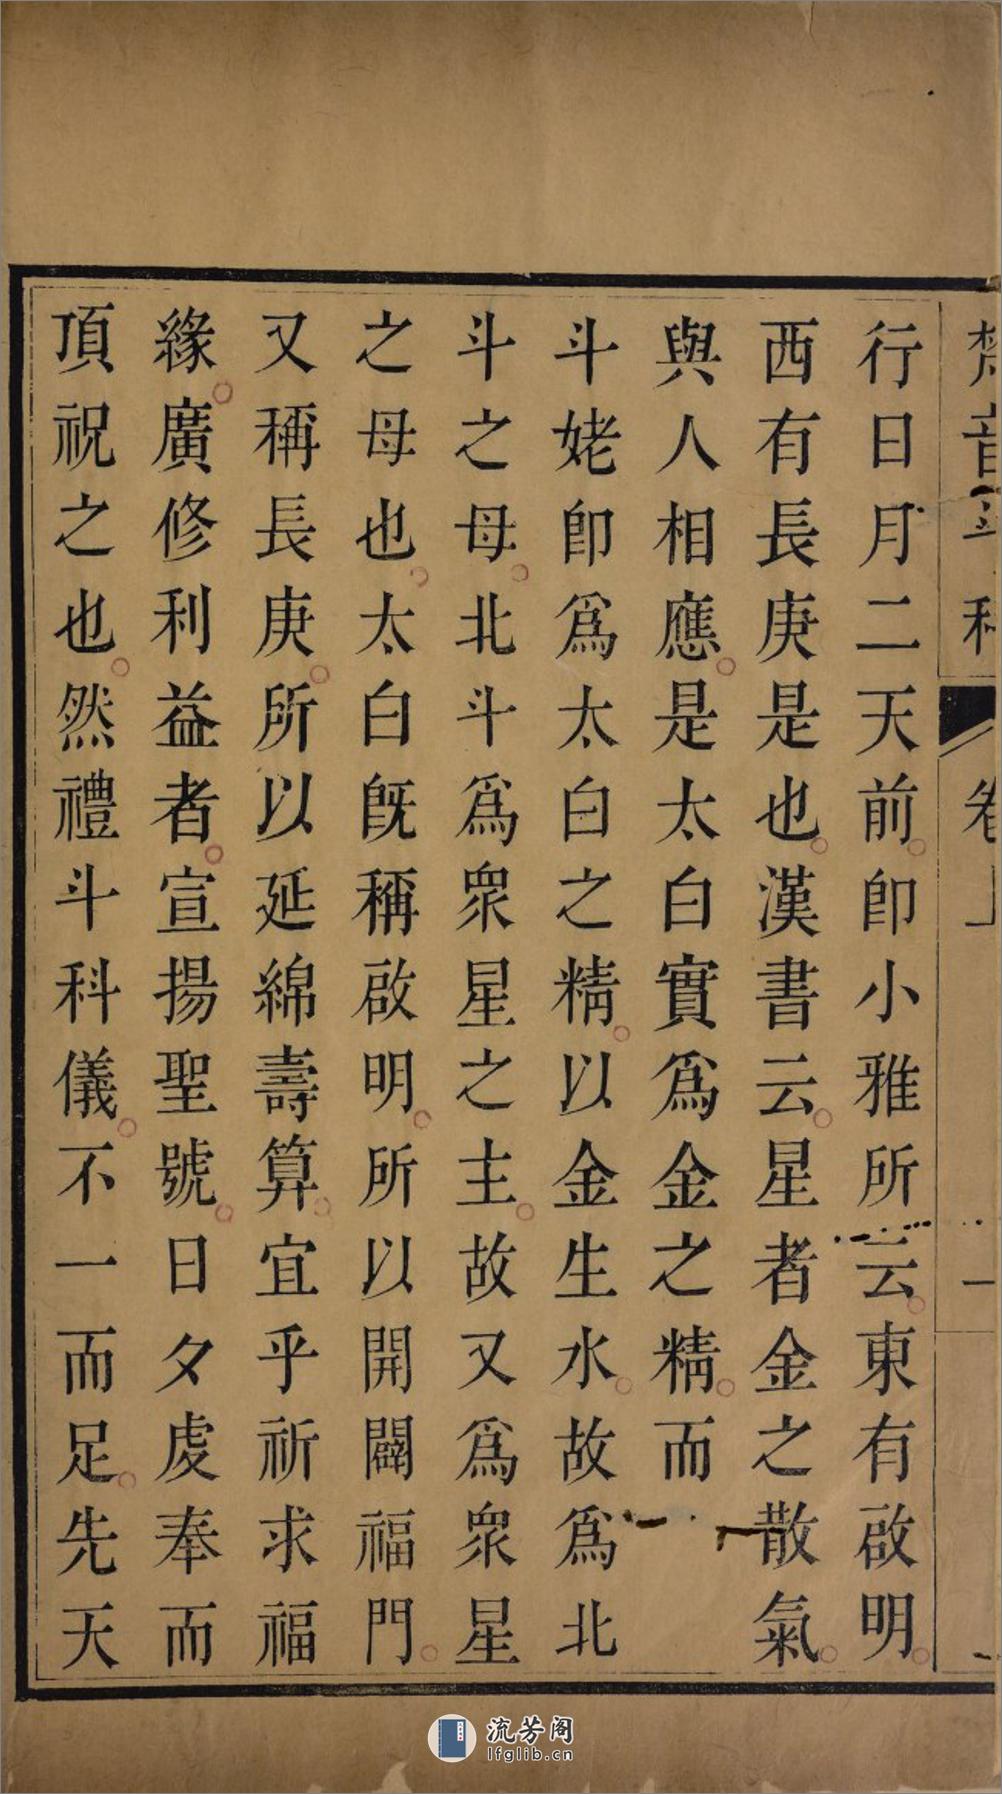 梵音斗科
卷上
一
行日月二天前即小雅所云東有啟明
西有長庚是也漢書云星者金之散氣
與人相應是太白實爲金之精而
斗姥即爲太白之精以金生水故爲北
斗之母北斗爲衆星之主故又爲衆星
之母也太白既稱啟明所以開闢福門
又稱長庚所以延綿壽算宜乎祈求福
緣廣修利益者宣揚聖號日夕虔奉而
頂祝之也然禮斗科儀不一而足先天
流芳阁
lfglib.cn